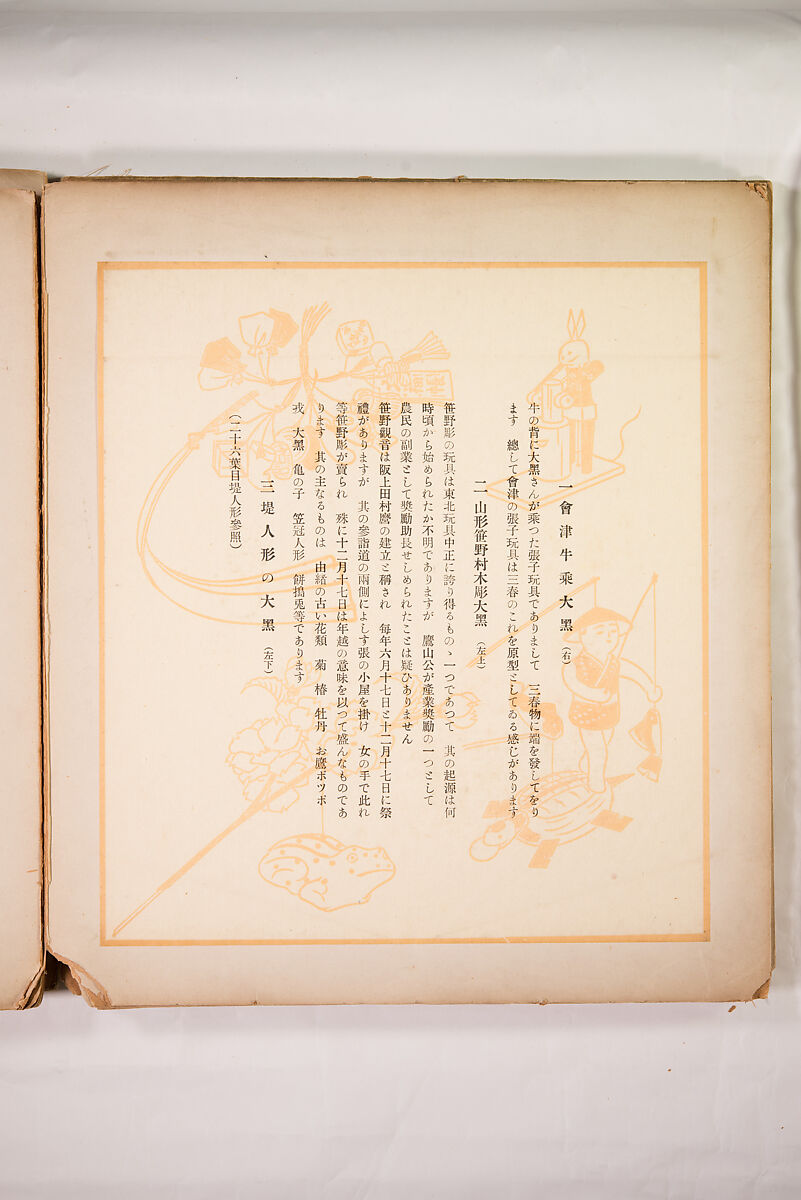 一 會津牛乘大黑 (右)
牛の背に大黑さんが乘つた張子玩具でありまして 三春物に端を發してをり
ます 總して會津の張子玩具は三春のこれを原型としてゐる感じがあります
二 山形笹野村木彫大黑 (左上)
笹野彫の玩具は東北玩具中正に誇り得るものゝ一つであつて 其の起源は何
時頃から始められたか不明でありますが 鷹山公が產業奬勵の一つとして
農民の副業として奬勵助長せしめられたことは疑ひありません
笹野觀音は阪上田村麿の建立と稱され 每年六月十七日と十二月十七日に祭
禮がありますが 其の參詣道の兩側によしず張の小屋を掛け 女の手で此れ
等笹野彫が賣られ 殊に十二月十七日は年越の意味を以つて盛んなものであ
ります 其の主なるものは 由緖の古い花類 菊 椿 牡丹 お鷹ポツポ
戎 大黑 亀の子 笠冠人形 餅搗兎等であります
三 堤人形の大黑 (左下)
(二十六葉目堤人形參照)